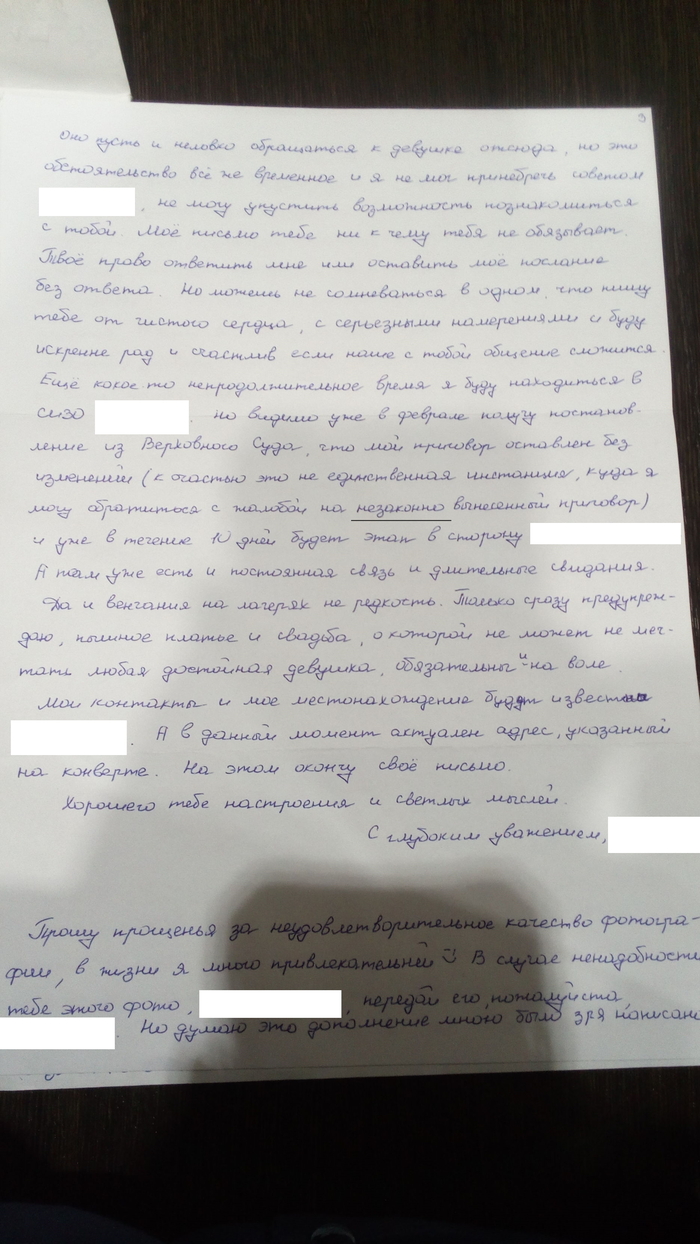 3
Оно пусть и неловко обращаться к девушке отсюда, но это
обстоятельство всё же временное и я не мог принебречь советом
, не могу упустить возможность познакомиться
с тобой. Моё письмо тебе ни к чему тебя не обязывает.
Твоё право ответить мне или оставить моё послание
без ответа. Но можешь не сомневаться в одном, что пишу
тебе от чистого сердца, с серьезными намерениями и буду
искренне рад и счастлив если наше с тобой общение сложится.
Ещё какое то непродолжительное время я буду находиться в
СИЗО . Но видимо уже в феврале получу постанов-
ление из Верховного Суда, что мой приговор оставлен без
изменений (к счастью это не единственная инстанция, куда я
могу обратиться с жалобой на незаконно вынесенный приговор)
и уже в течение 10 дней будет этап в сторону
А там уже есть и постоянная связь и длительные свидания.
Да и венчания на лагерях не редкость. Только сразу предупреж-
даю, пышное платье и свадьба, о которой не может не меч-
тать любая достойная девушка, обязательны и на воле.
Мои контакты и мое местонахождение будет известно
. А в данный момент актуален адрес, указанный
на конверте. На этом окончу своё письмо.
Хорошего тебе настроения и светлых мыслей.
С глубоким уважением,
Прошу прощенья за неудовлетворительное качество фотогра-
фии, в жизни я много привлекательней :) В случае ненадобности
тебе этого фото, , передай его, пожалуйста,
. Но думаю это дополнение мною было зря написано